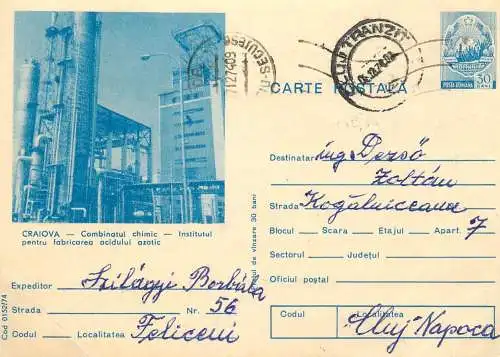 CLUJ TRANZIT
CARTE POSTALĂ
POSTA ROMANA
30
BANI
CRAIOVA — Combinatul chimic — Institutul
pentru fabricarea acidului azotic
Expeditor Szilágyi Borbála
Strada Nr. 56
Codul Localitatea Feliceni
Cod 0152/74
de vînzare 30 bani
Destinatar ing Dezső
Zoltán
Strada Kogălniceanu
Blocul Scara Etajul Apart. 7
Sectorul Județul
Oficiul poștal
Codul Localitatea
Cluj Napoca